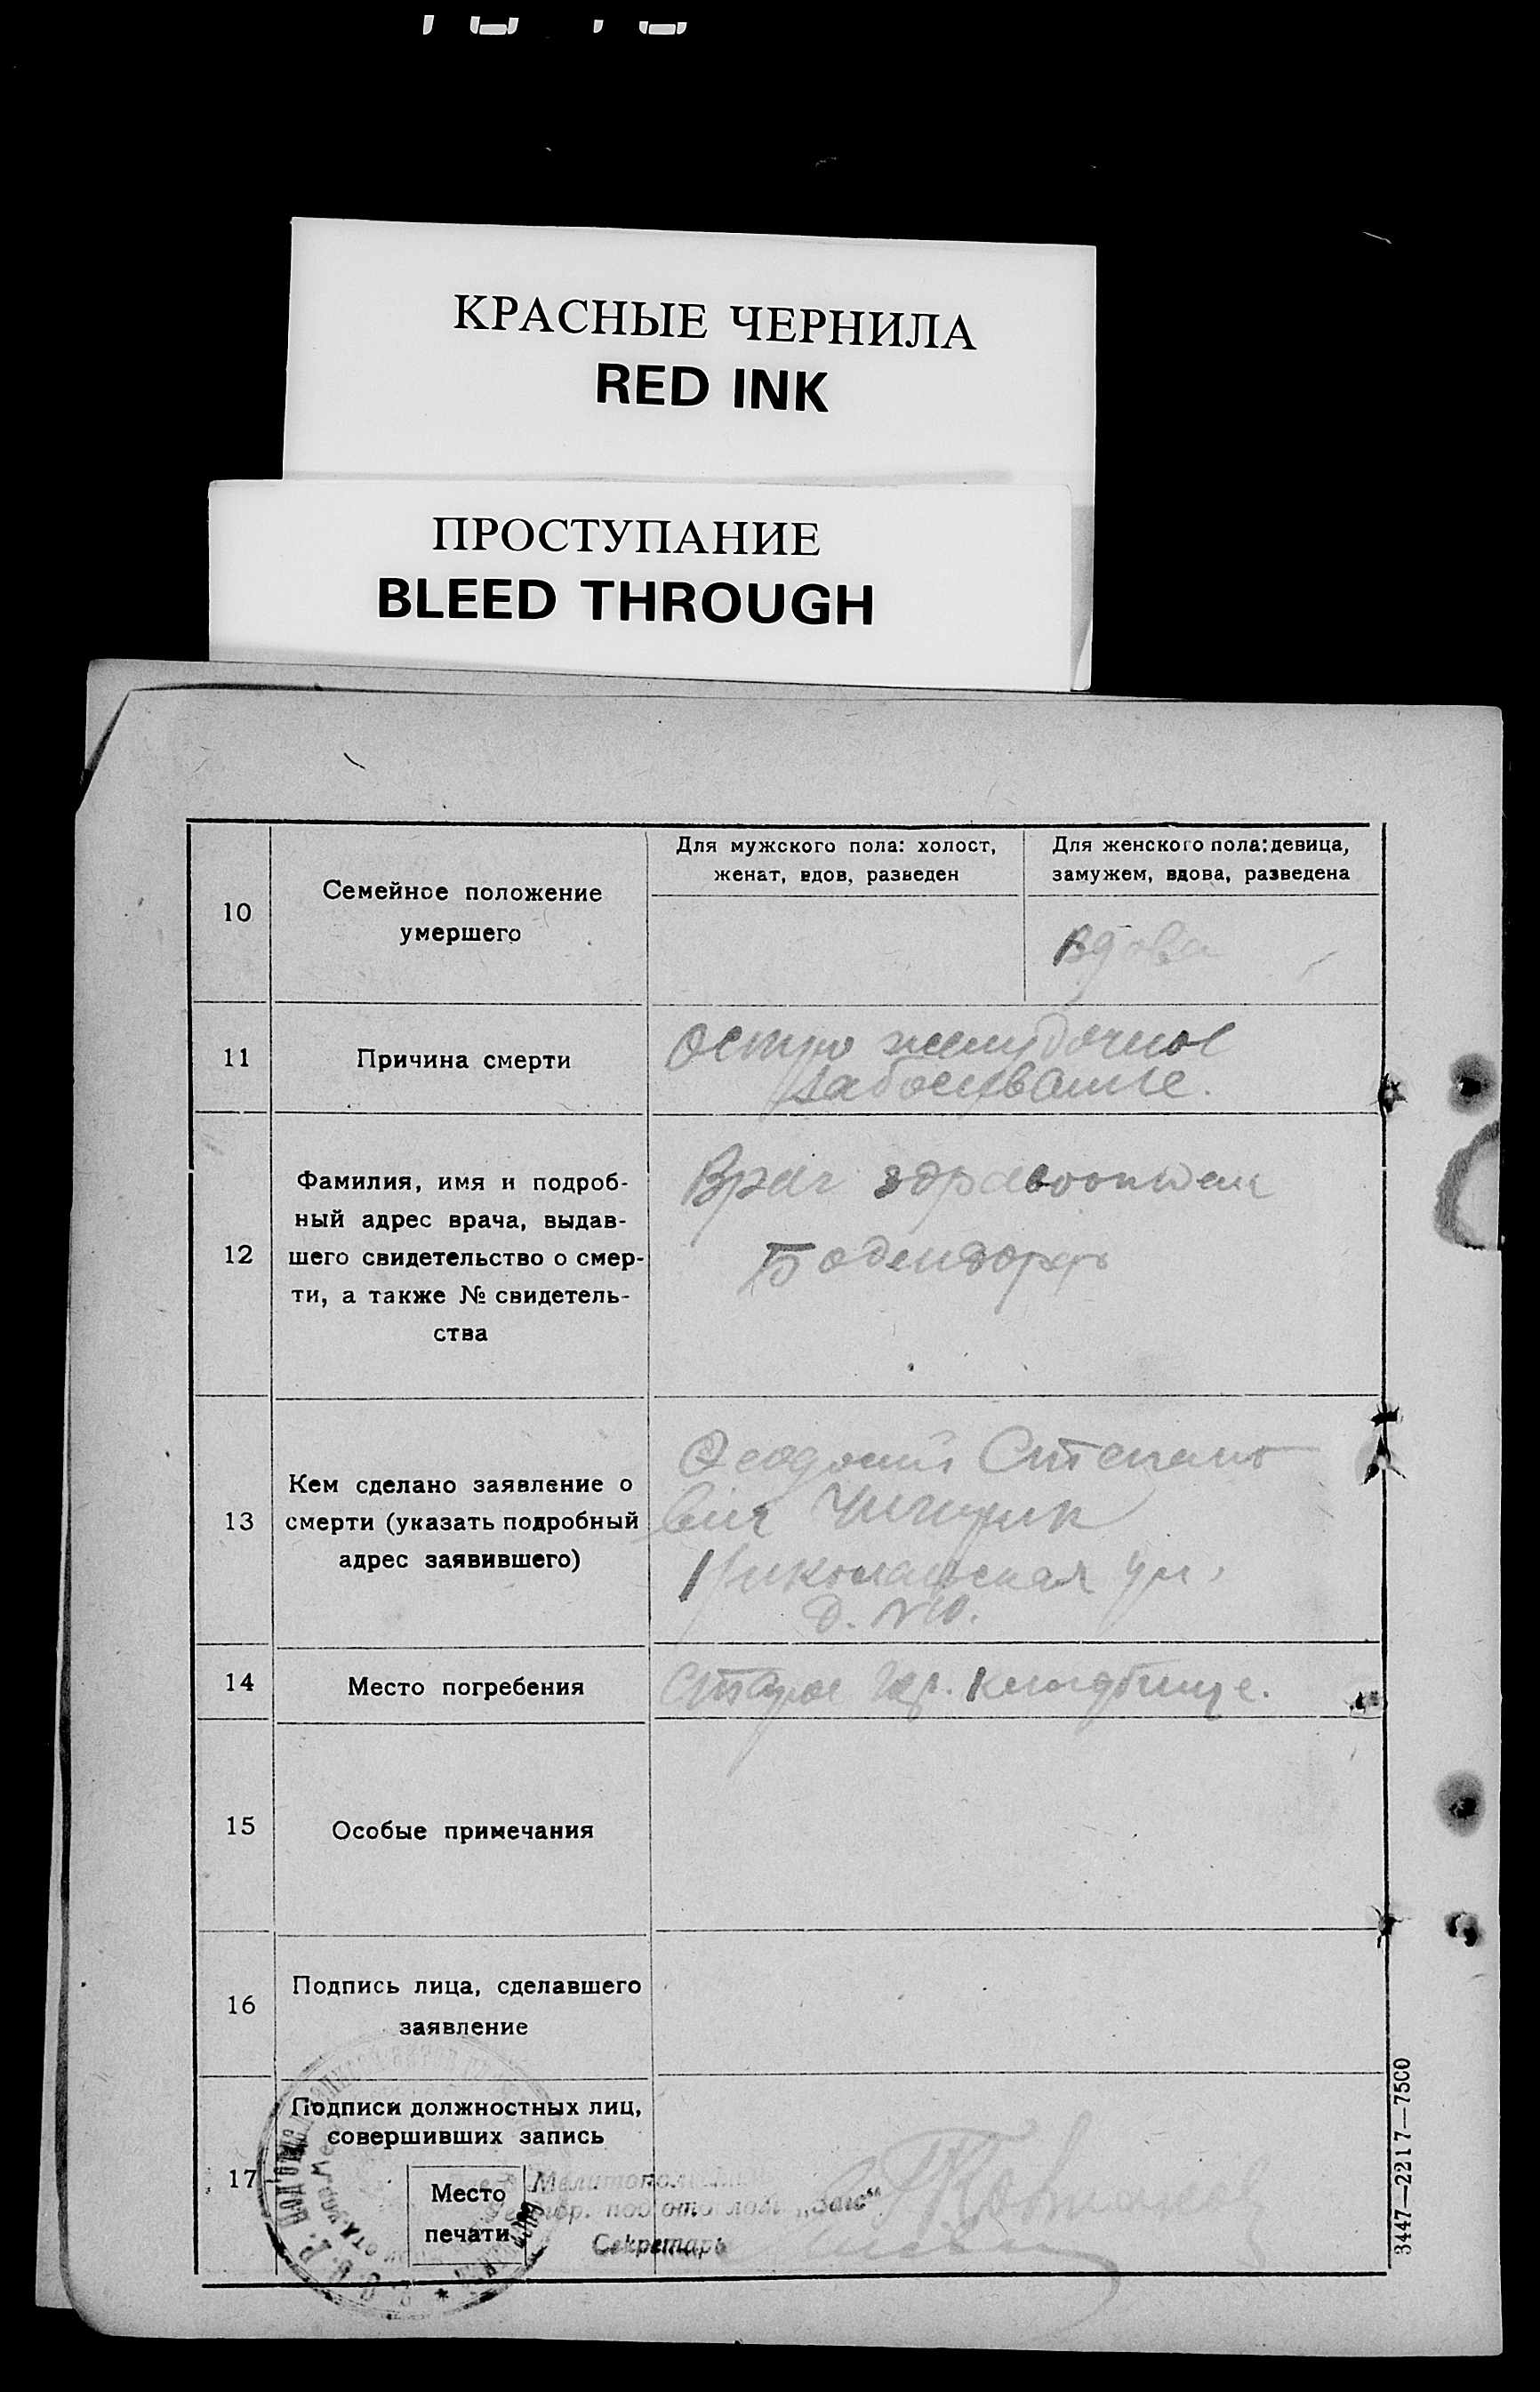 КРАСНЫЕ ЧЕРНИЛА
RED INK
ПРОСТУПАНИЕ
BLEED THROUGH
10
Семейное положение
умершего
Для мужского пола: холост,
женат, вдов, разведен
Для женского пола: девица,
замужем, вдова, разведена
вдова
11
Причина смерти
остро желудочное
заболевание.
12
Фамилия, имя и подроб-
ный адрес врача, выдав-
шего свидетельство о смер-
ти, а также № свидетель-
ства
Врач
Бодендорф
13
Кем сделано заявление о
смерти (указать подробный
адрес заявившего)
Феодосий Степано
вич
Николаевская ул.
д. №10.
14
Место погребения
Старое кладбище.
15
Особые примечания
16
Подпись лица, сделавшего
заявление
17
Подписи должностных лиц,
совершивших запись
Место
печати
„Загс“
Секретарь
3447—2217—7500